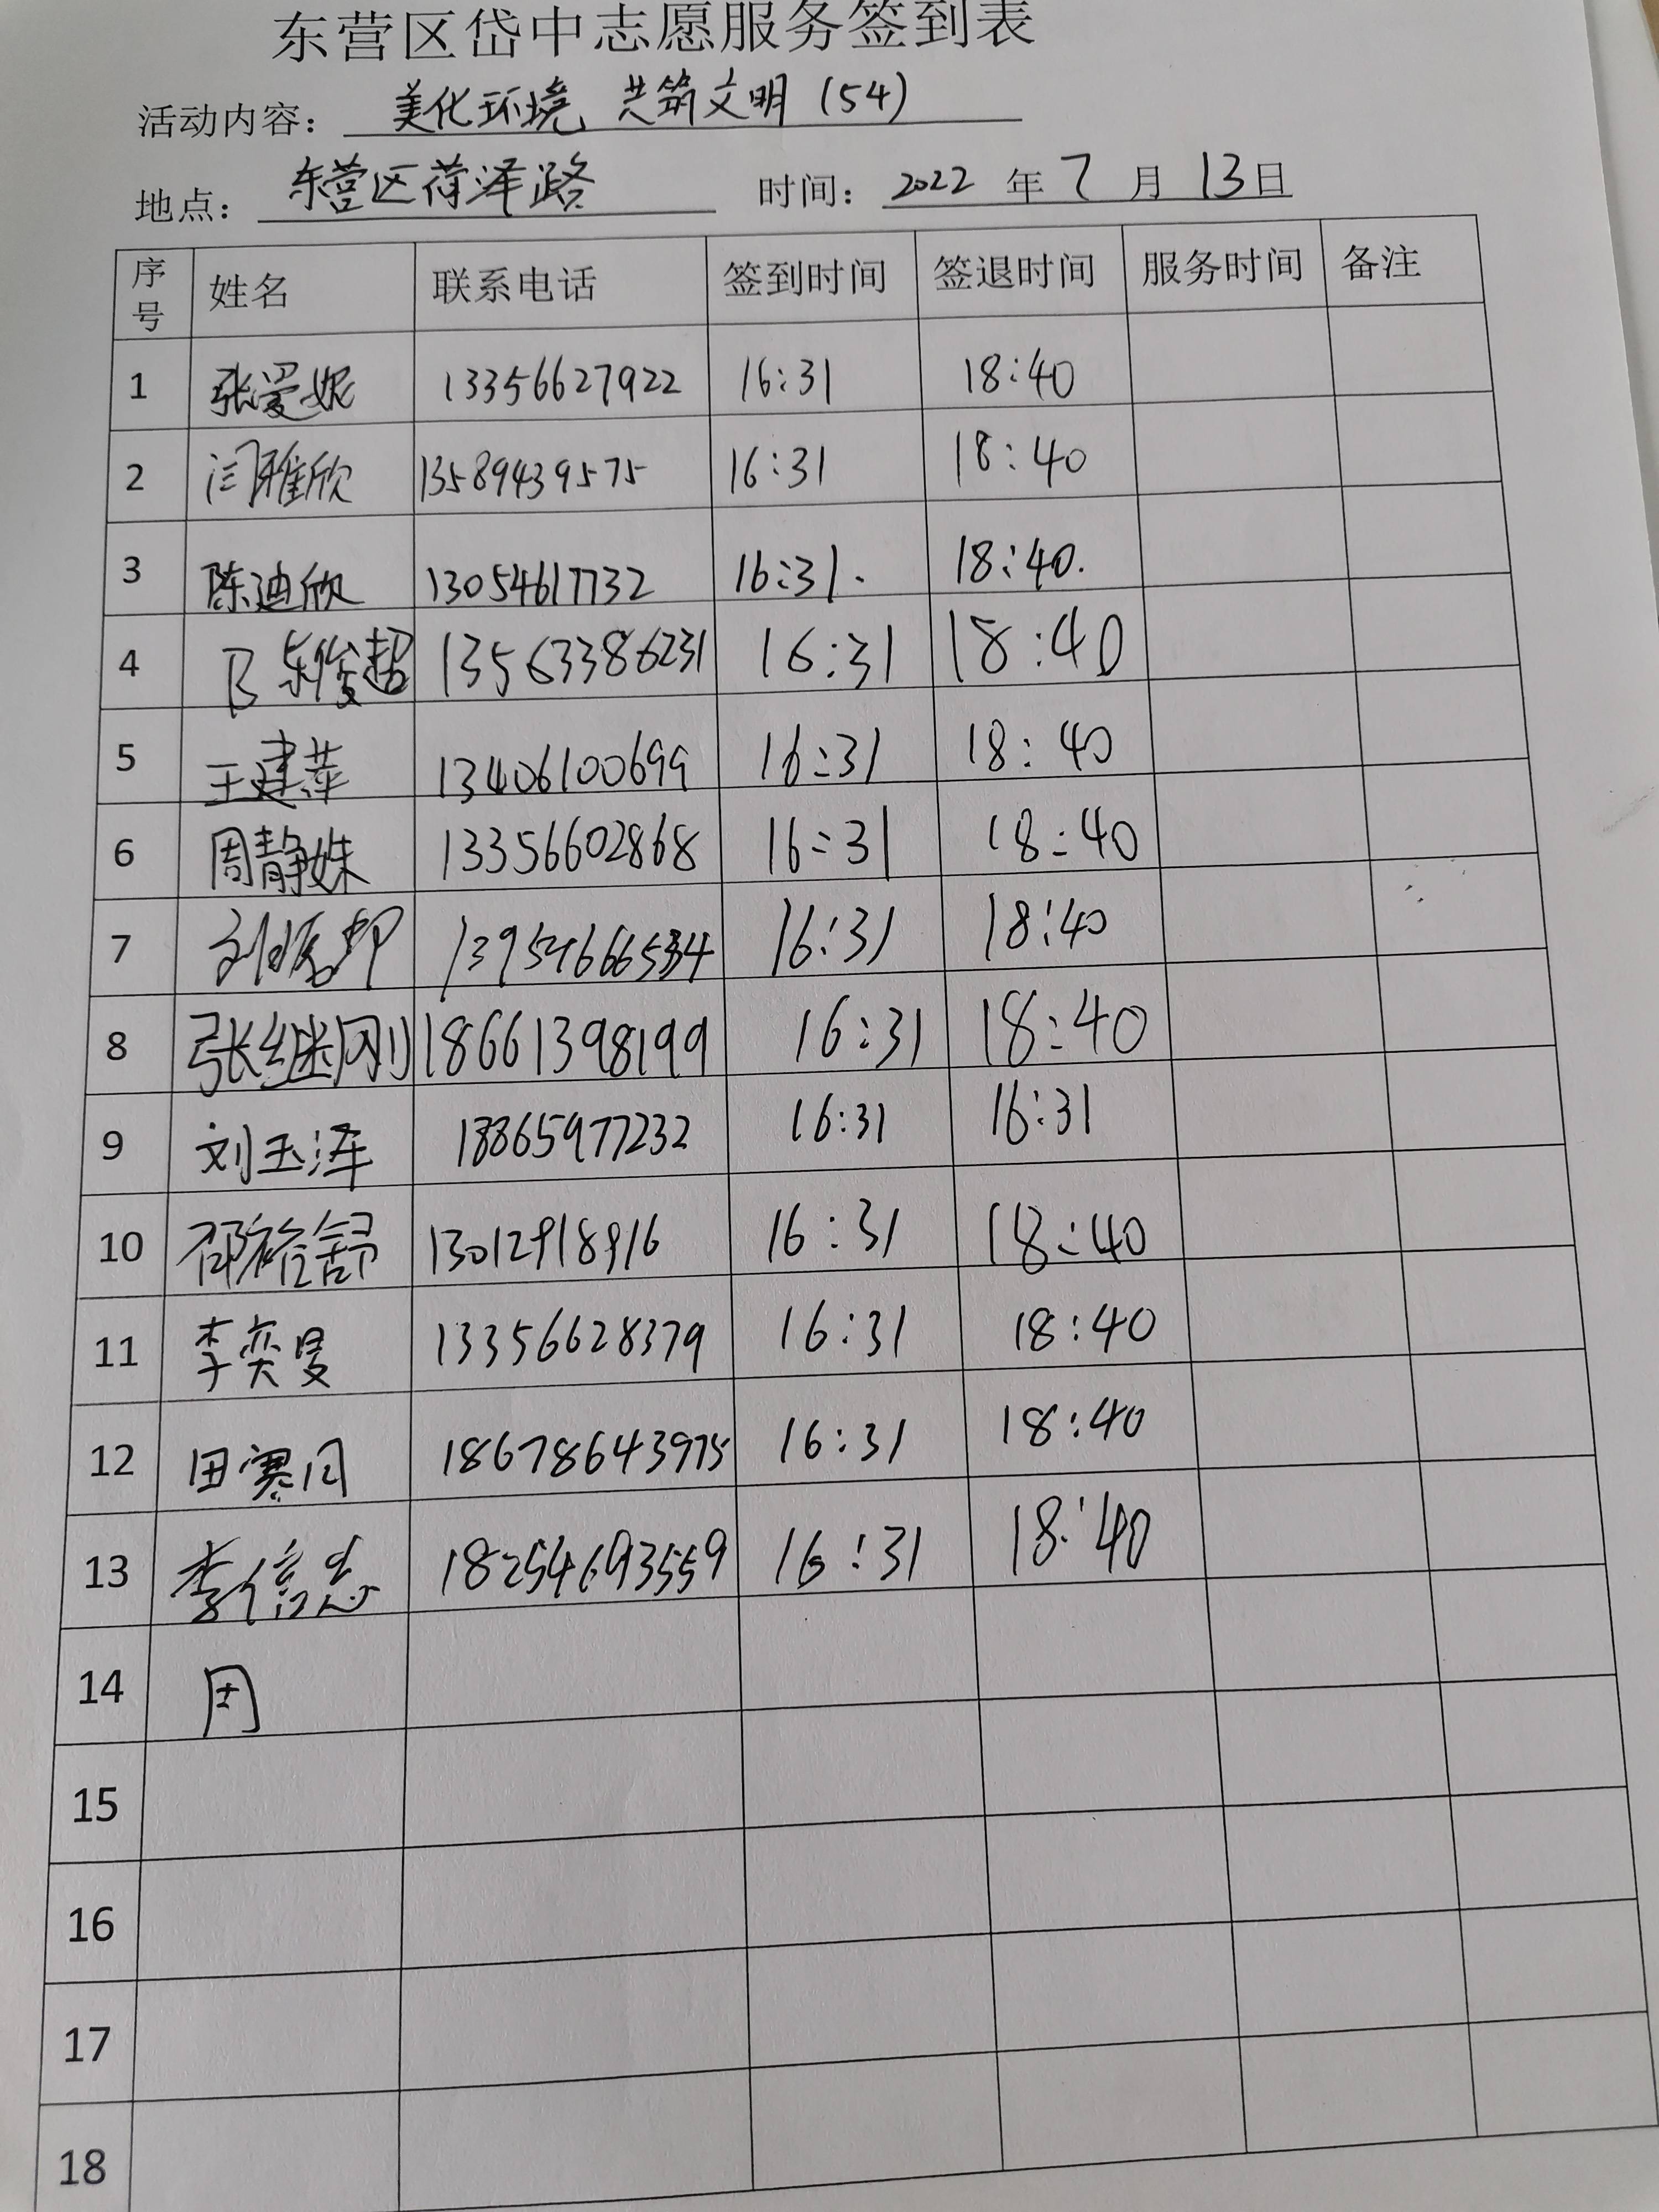 东营区岱中志愿服务签到表
活动内容: 美化环境 共筑文明(54)
地点: 东营区荷泽路 时间: 2022 年 7 月 13日
序号 姓名 联系电话 签到时间 签退时间 服务时间 备注
1 张爱妮 13356627922 16:31 18:40
2 闫雅欣 13589439575 16:31 18:40
3 陈迪欣 13054617732 16:31. 18:40.
4 陈俊超 13563386231 16:31 18:40
5 王建萍 13406100699 16:31 18:40
6 周静姝 13356602868 16:31 18:40
7 13954666534 16:31 18:40
8 张继刚 18661398199 16:31 18:40
9 刘玉泽 18865977232 16:31 16:31
10 邵裕舒 13012918916 16:31 18:40
11 李奕旻 13356628379 16:31 18:40
12 田寒冈 18678643975 16:31 18:40
13 李信志 18254693559 16:31 18:40
14
15
16
17
18